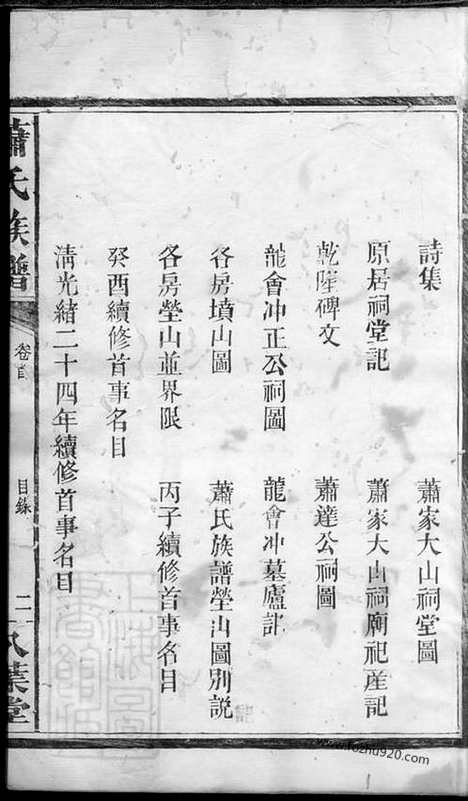 詩集　蕭家大山祠堂圖
原居祠堂記　蕭家大山祠廟祀産記
乾隆碑文　蕭達公祠圖
龍會冲正公祠圖　龍會冲墓廬記
各房墳山圖　蕭氏族譜塋山圖別説
各房塋山並界限　丙子續修首事名目
癸酉續修首事名目
淸光緒二十四年續修首事名目
蕭氏族譜　卷首　目錄　二　八葉堂
www.fozhu920.com